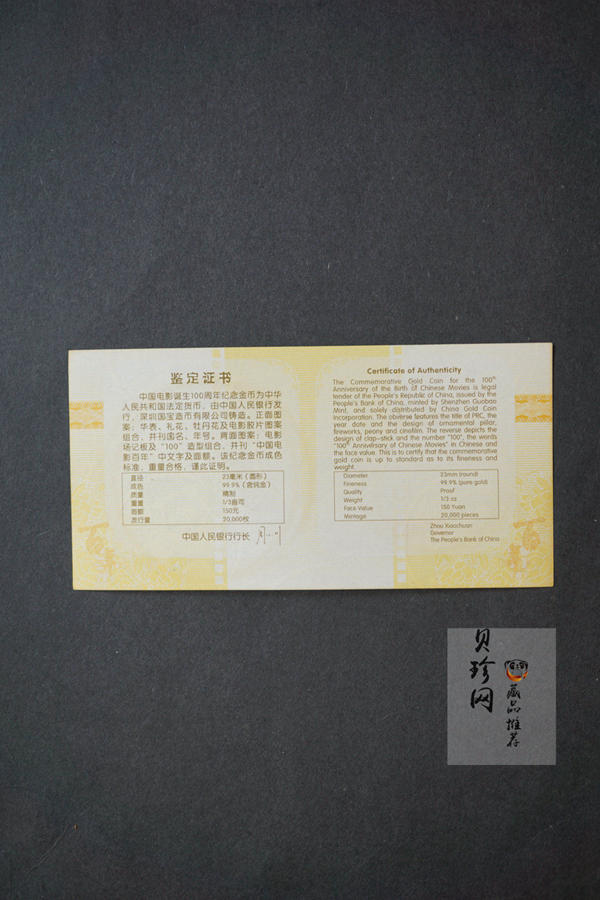 鉴定证书
中国电影诞生100周年纪念金币为中华
人民共和国法定货币，由中国人民银行发
行，深圳国宝造币有限公司铸造。正面图
案：华表、礼花、牡丹花及电影胶片图案
组合，并刊国名、年号。背面图案：电影
场记板及“100”造型组合，并刊“中国电
影百年”中文字及面额。该纪念金币成色
标准，重量合格，谨此证明。
直径 23毫米（圆形）
成色 99.9%（含纯金）
质量 精制
重量 1/3盎司
面额 150元
发行量 20,000枚
中国人民银行行长
Certificate of Authenticity
The Commemorative Gold Coin for the 100th
Anniversary of the Birth of Chinese Movies is legal
tender of the People's Republic of China, issued by the
People's Bank of China, minted by Shenzhen Guobao
Mint, and solely distributed by China Gold Coin
Incorporation. The obverse features the title of PRC, the
year date and the design of ornamental pillar,
fireworks, peony and cinefilm. The reverse depicts the
design of clap-stick and the number "100", the words
"100th Anniversary of Chinese Movies" in Chinese and
the face value. This is to certify that the commemorative
gold coin is up to standard as to its fineness and
weight.
Diameter 23mm (round)
Fineness 99.9% (pure gold)
Quality Proof
Weight 1/3 oz
Face Value 150 Yuan
Mintage 20,000 pieces
Zhou Xiaochuan
Governor
The People's Bank of China
贝珍网
藏品推荐